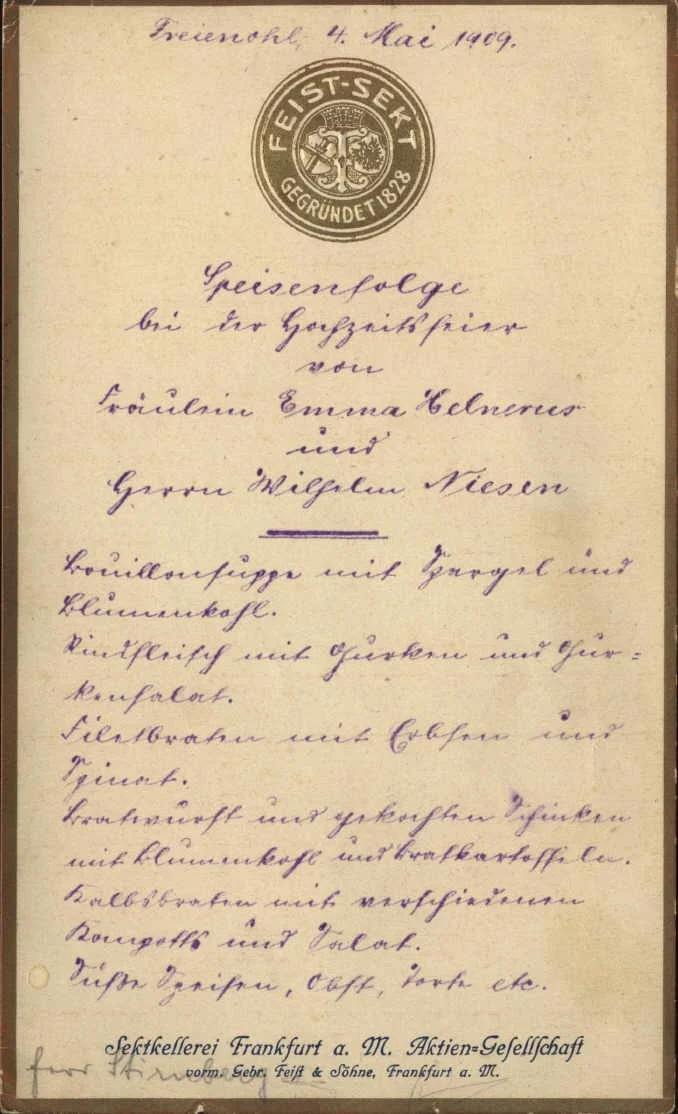 Freienohl, 4. Mai 1909.
FEIST-SEKT
GEGRÜNDET 1828
Speisenfolge
bei der Hochzeitsfeier
von
Fräulein Emma Helnerus
und
Herrn Wilhelm Niesen
Bouillonsuppe mit Spargel und
Blumenkohl.
Rindfleisch mit Gurken und Gur=
kensalat.
Filetbraten mit Erbsen und
Spinat.
Bratwurst und gekochten Schinken
mit Blumenkohl und Bratkartoffeln.
Kalbsbraten mit verschiedenen
Kompotts und Salat.
Süße Speisen, Obst, Torte etc.
Sektkellerei Frankfurt a. M. Aktien=Gesellschaft
vorm. Gebr. Feist & Söhne, Frankfurt a. M.
Herr